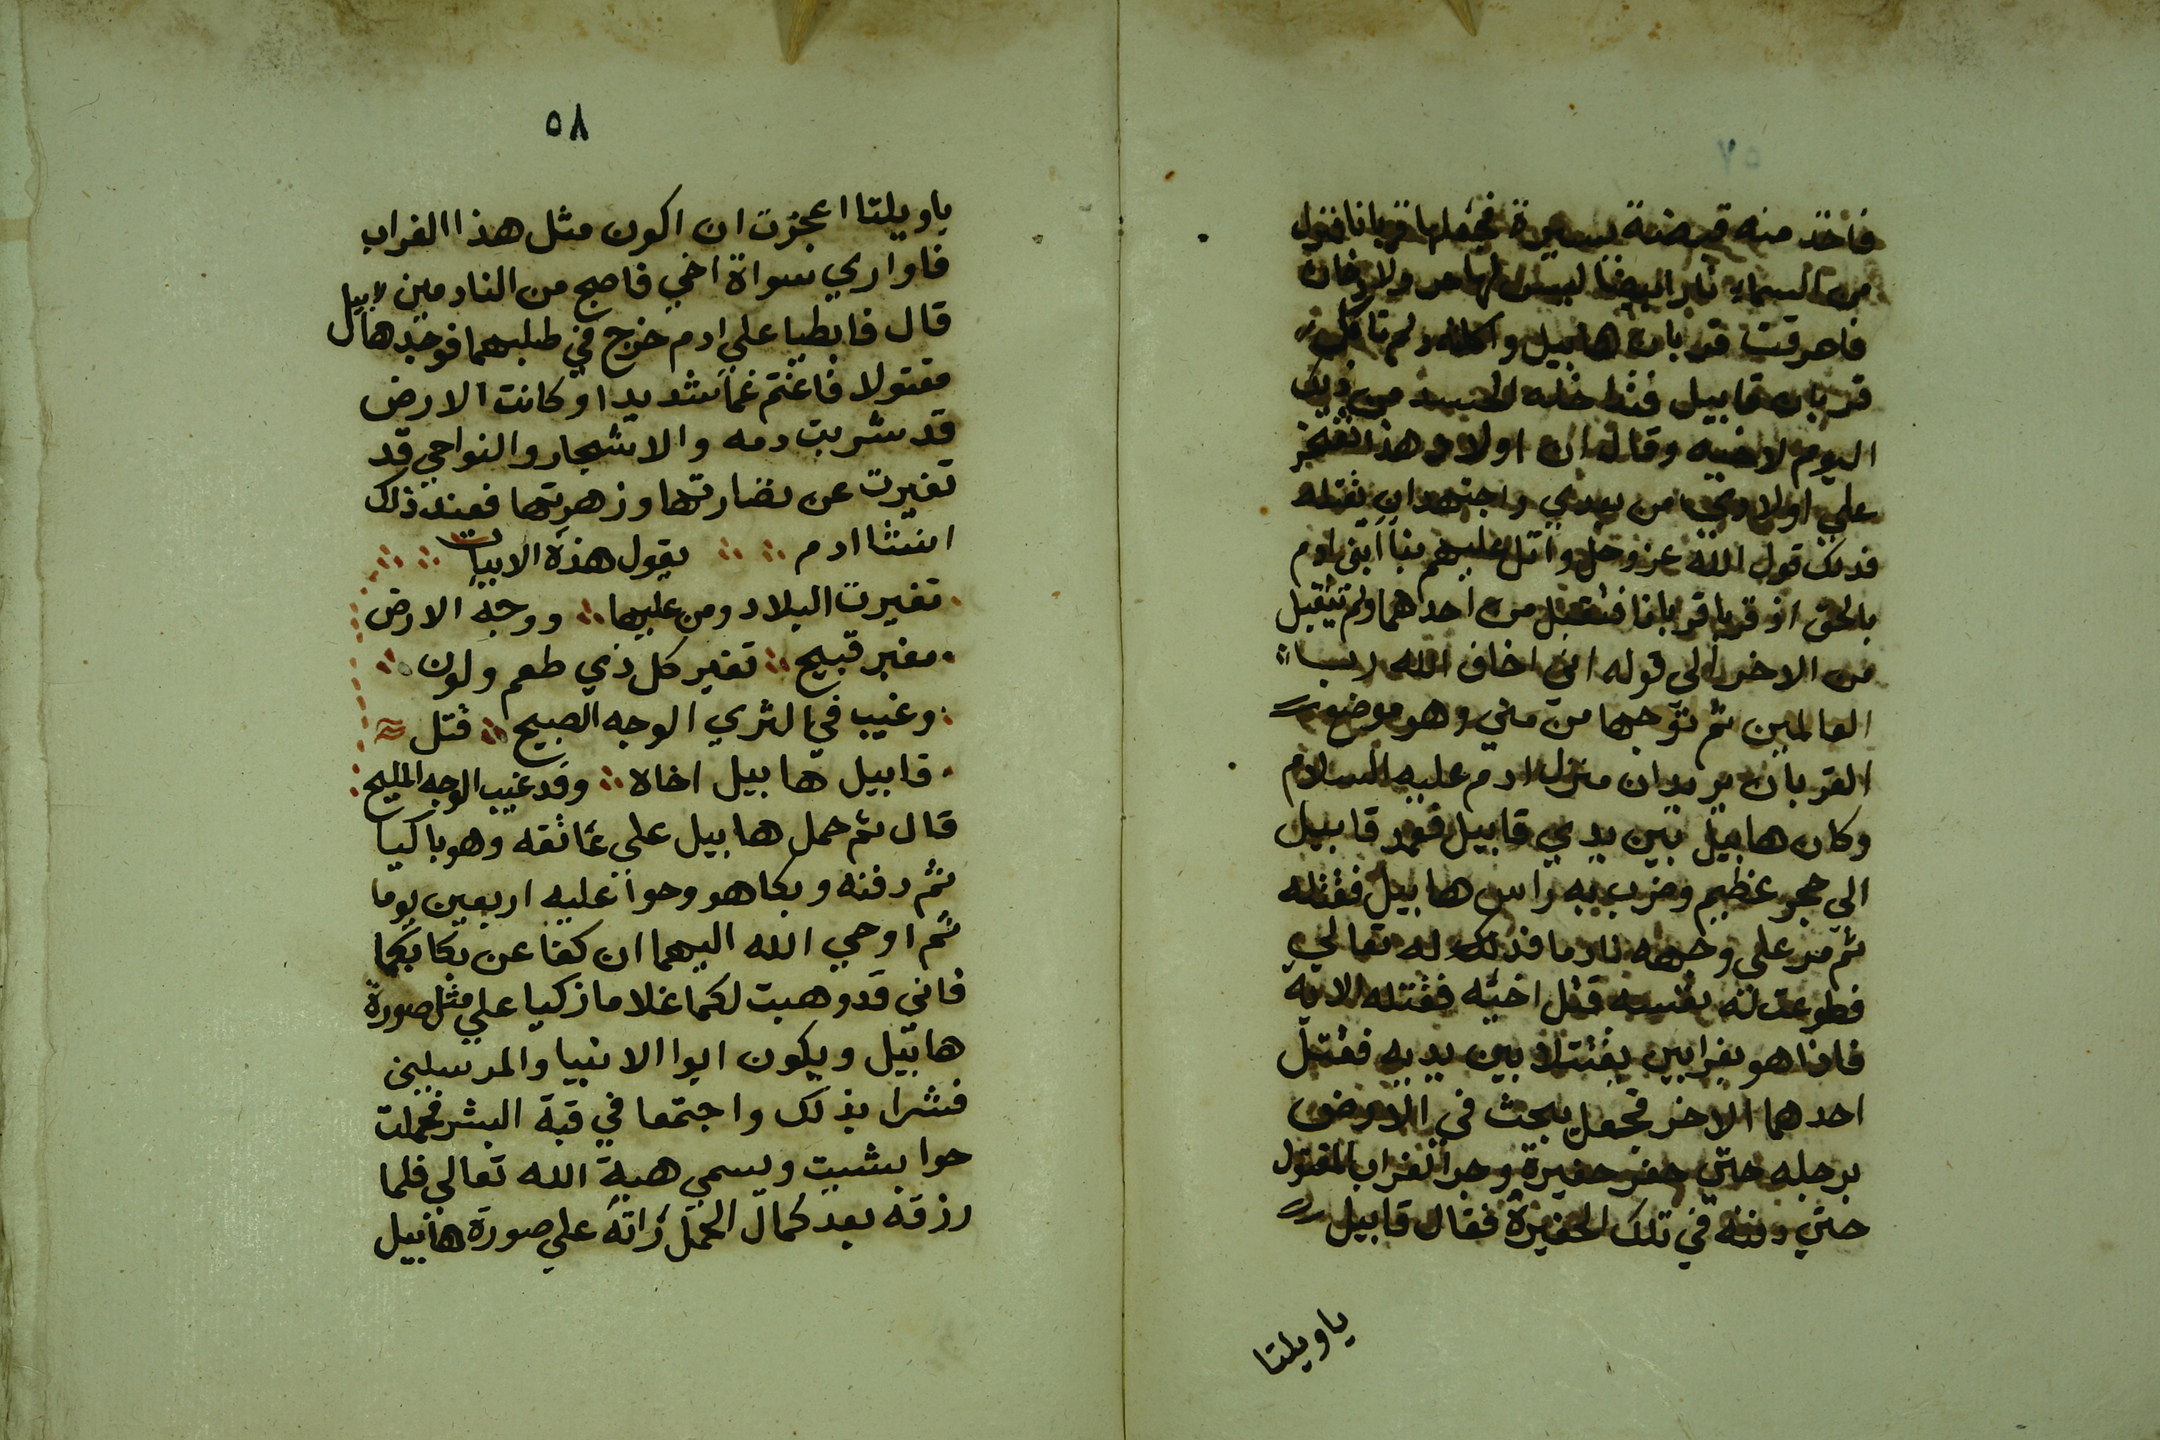 ٥٧
فاخذ منه قبضة يسيرة فجعلها قربانا فنزل
من السماء نار البيضا ليس لها حر ولا دخان
فاحرقت قربان هابيل واكلته ولم تاكل
قربان قابيل فتداخله الحسد من ذلك
اليوم لاخيه وقال ان اولاد هذا تفتخر
علي اولادي من بعدي واجتهد ان يقتله
فذلك قول الله عز وجل واتل عليهم نبأ ابني ادم
بالحق اذ قربا قربانا فتقبل من احدهما ولم يتقبل
من الاخر الي قوله اني اخاف الله رب
العالمين ثم توجها من مني وهو موضع
القربان يريدان منزل ادم عليه السلام
وكان هابيل بين يدي قابيل فعمد قابيل
الي حجر عظيم وضرب به راس هابيل فقتله
ثم مر علي وجهه نادما فذلك له تعالي
فطوعت له نفسه قتل اخيه فقتله الايه
فاذا هو بغرابين يقتتلا بين يديه فقتل
احدهما الاخر فجعل يبحث في الارض
برجله حتي حفر حفيرة وجر الغراب المقتول
حتي دفنه في تلك الحفيرة فقال قابيل
ياويلتا
٥٨
ياويلتا اعجزت ان اكون مثل هذا الغراب
فاواري سواة اخي فاصبح من النادمين
قال فابطيا علي ادم خرج في طلبهما فوجد هابيل
مقتولا فاغتم غما شديدا وكانت الارض
قد شربت دمه والاشجار والنواحي قد
تغيرت عن نضارتها وزهرتها فعند ذلك
انشا ادم يقول هذه الابيات
تغيرت البلاد ومن عليها ووجه الارض
مغبر قبيح تغير كل ذي طعم ولون
وغيب في الثري الوجه الصبيح قتل
قابيل هابيل اخاه وقد غيب الوجه المليح
قال ثم حمل هابيل علي عاتقه وهو باكيا
ثم دفنه وبكا هو وحوا عليه اربعين يوما
ثم اوحي الله اليهما ان كفا عن بكايكما
فاني قد وهبت لكما غلاما زكيا علي مثل صورة
هابيل ويكون ابوا الانبيا والمرسلين
فسرا بذلك واجتمعا في قبة البشر فحملت
حوا بشيت ويسمي هبة الله تعالي فلما
رزقه بعد كمال الحمل راته علي صورة هابيل